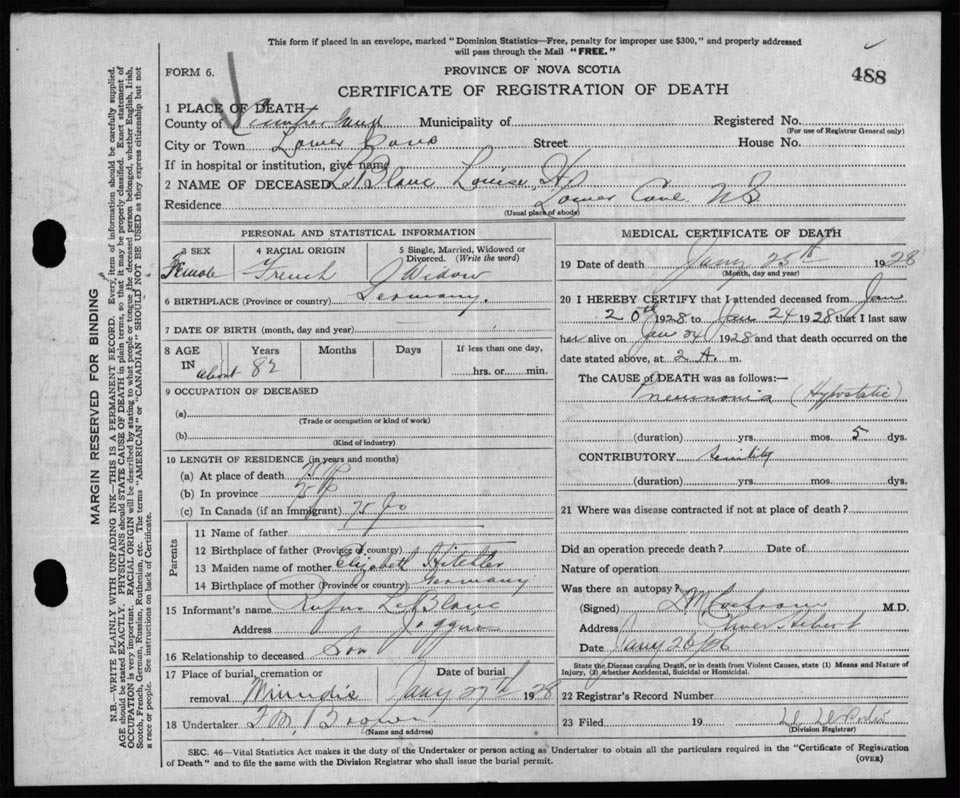 This form if placed in an envelope, marked "Dominion Statistics—Free, penalty for improper use $300," and properly addressed
will pass through the Mail "FREE."
FORM 6.
PROVINCE OF NOVA SCOTIA
488
CERTIFICATE OF REGISTRATION OF DEATH
1 PLACE OF DEATH
County of Cumberland Municipality of Registered No.
(For use of Registrar General only)
City or Town Lower Cove Street House No.
If in hospital or institution, give name
2 NAME OF DECEASED LeBlanc Louise
Residence Lower Cove N.S.
(Usual place of abode)
PERSONAL AND STATISTICAL INFORMATION
3 SEX 4 RACIAL ORIGIN 5 Single, Married, Widowed or
Divorced. (Write the word)
Female French Widow
6 BIRTHPLACE (Province or country) Germany.
7 DATE OF BIRTH (month, day and year)
8 AGE Years Months Days If less than one day,
IN about 82 hrs. or min.
9 OCCUPATION OF DECEASED
(a)
(Trade or occupation or kind of work)
(b)
(Kind of industry)
10 LENGTH OF RESIDENCE (in years and months)
(a) At place of death 75
(b) In province 75
(c) In Canada (if an immigrant) 75
Parents
11 Name of father
12 Birthplace of father (Province or country)
13 Maiden name of mother Elizabeth
14 Birthplace of mother (Province or country) Germany
15 Informant's name Rufus LeBlanc
Address Joggins
16 Relationship to deceased Son
17 Place of burial, cremation or Date of burial
removal Minudie Jany 27th 1928
18 Undertaker
(Name and address)
MEDICAL CERTIFICATE OF DEATH
19 Date of death Jany 25th 1928
(Month, day and year)
20 I HEREBY CERTIFY that I attended deceased from Jan
20th 1928 to Jan 24 1928 that I last saw
her alive on Jan 24 1928 and that death occurred on the
date stated above, at 2 A. m.
The CAUSE of DEATH was as follows:—
Pneumonia (Hypostatic)
(duration) yrs. mos. 5 dys.
CONTRIBUTORY Senility
(duration) yrs. mos. dys.
21 Where was disease contracted if not at place of death?
Did an operation precede death? Date of
Nature of operation
Was there an autopsy?
(Signed) Cochrane M.D.
Address River Hebert
Date Jany 26
State the Disease causing Death, or in death from Violent Causes, state (1) Means and Nature of
Injury, (2) whether Accidental, Suicidal or Homicidal.
22 Registrar's Record Number
23 Filed 19
(Division Registrar)
SEC. 46—Vital Statistics Act makes it the duty of the Undertaker or person acting as Undertaker to obtain all the particulars required in the "Certificate of Registration
of Death" and to file the same with the Division Registrar who shall issue the burial permit.
(OVER)
MARGIN RESERVED FOR BINDING
N.B.—WRITE PLAINLY WITH UNFADING INK—THIS IS A PERMANENT RECORD. Every item of information should be carefully supplied.
AGE should be stated EXACTLY. PHYSICIANS should STATE CAUSE OF DEATH in plain terms, so that it may be properly classified. Exact statement of
OCCUPATION is very important. RACIAL ORIGIN will be described by stating to what people or tongue the deceased person belonged, whether English, Irish,
Scotch, French, German, Russian, Ruthenian, etc. The terms "AMERICAN" or "CANADIAN" SHOULD NOT BE USED as they express citizenship but not
a race or people. See instructions on back of Certificate.